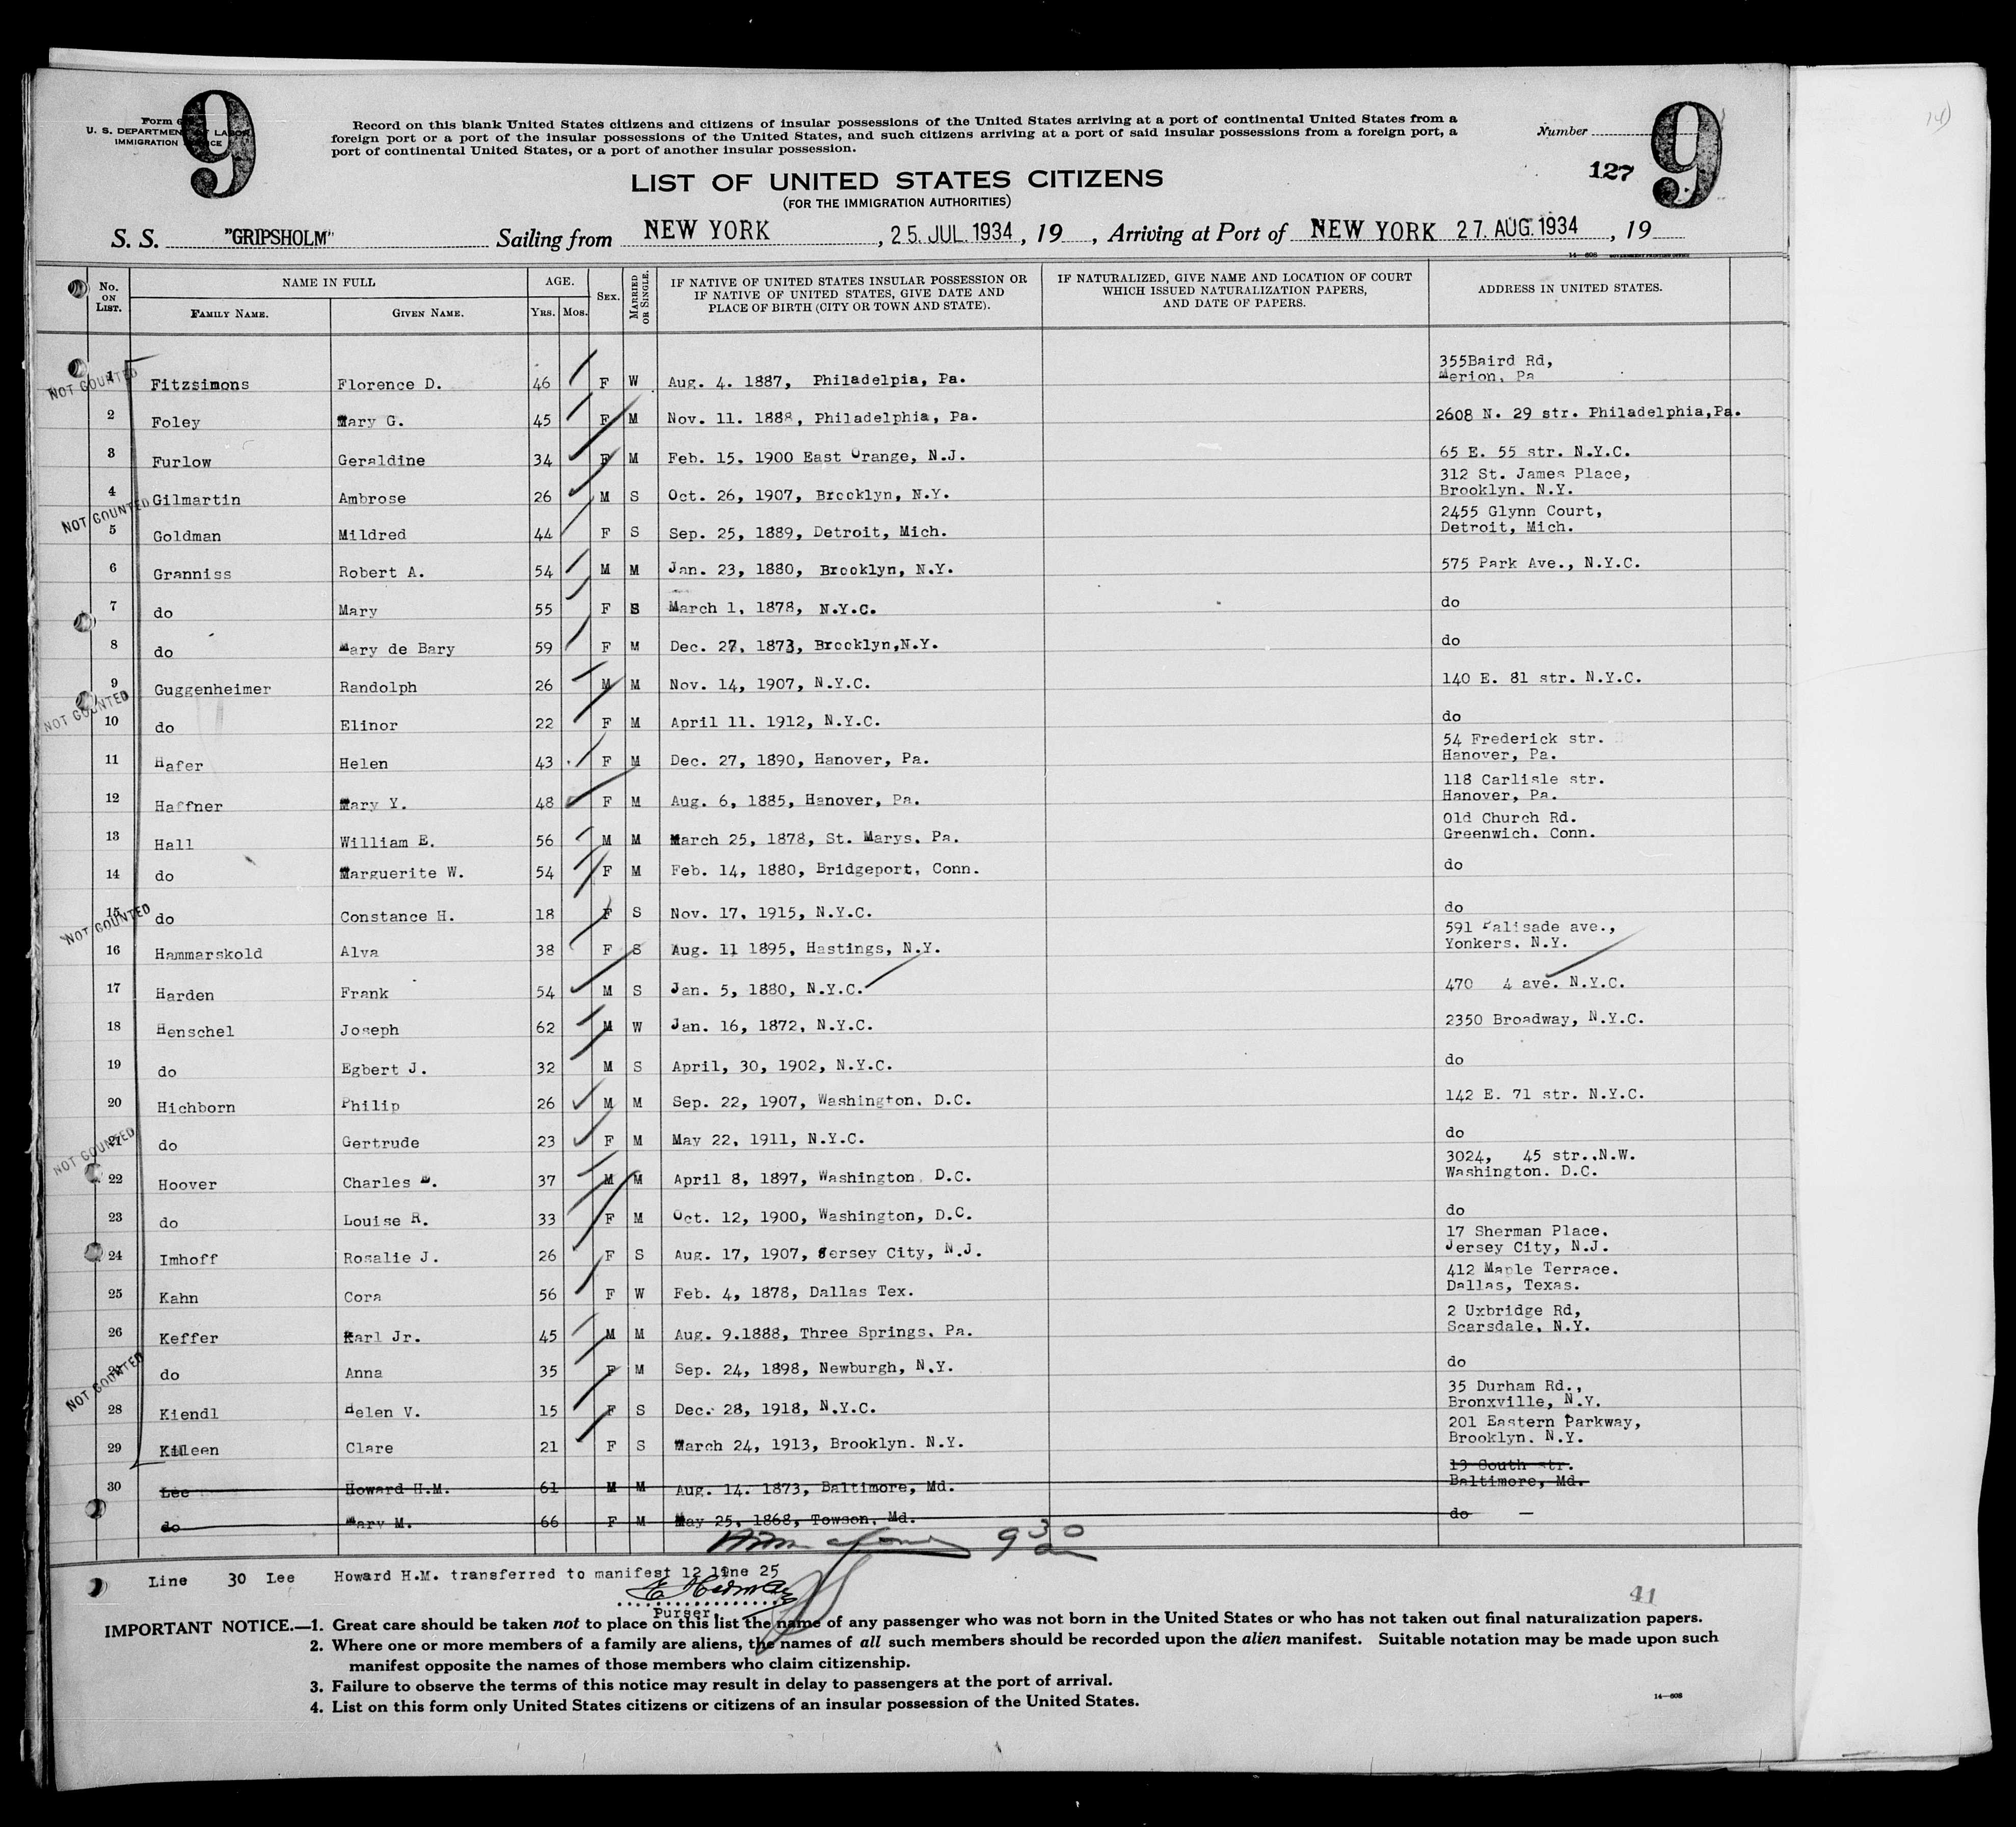 9
Form 6
U. S. DEPARTMENT OF LABOR
IMMIGRATION SERVICE
Record on this blank United States citizens and citizens of insular possessions of the United States arriving at a port of continental United States from a
foreign port or a port of the insular possessions of the United States, and such citizens arriving at a port of said insular possessions from a foreign port, a
port of continental United States, or a port of another insular possession.
Number
127
9
LIST OF UNITED STATES CITIZENS
(FOR THE IMMIGRATION AUTHORITIES)
S. S. "GRIPSHOLM" Sailing from NEW YORK, 25. JUL. 1934, 19 , Arriving at Port of NEW YORK 27. AUG. 1934, 19
14—608 GOVERNMENT PRINTING OFFICE
No. ON LIST. NAME IN FULL FAMILY NAME. GIVEN NAME. AGE. YRS. MOS. SEX. MARRIED OR SINGLE. IF NATIVE OF UNITED STATES INSULAR POSSESSION OR IF NATIVE OF UNITED STATES, GIVE DATE AND PLACE OF BIRTH (CITY OR TOWN AND STATE). IF NATURALIZED, GIVE NAME AND LOCATION OF COURT WHICH ISSUED NATURALIZATION PAPERS, AND DATE OF PAPERS. ADDRESS IN UNITED STATES.
NOT COUNTED
1 Fitzsimons Florence D. 46 F W Aug. 4. 1887, Philadelpia, Pa. 355Baird Rd, Merion, Pa
2 Foley Mary G. 45 F M Nov. 11. 1888, Philadelphia, Pa. 2608 N. 29 str. Philadelphia,Pa.
3 Furlow Geraldine 34 F M Feb. 15. 1900 East Orange, N.J. 65 E. 55 str. N.Y.C.
4 Gilmartin Ambrose 26 M S Oct. 26, 1907, Brooklyn, N.Y. 312 St. James Place, Brooklyn. N.Y.
NOT COUNTED
5 Goldman Mildred 44 F S Sep. 25, 1889, Detroit, Mich. 2455 Glynn Court, Detroit, Mich.
6 Granniss Robert A. 54 M M Jan. 23, 1880, Brooklyn, N.Y. 575 Park Ave., N.Y.C.
7 do Mary 55 F S March 1, 1878, N.Y.C. do
8 do Mary de Bary 59 F M Dec. 27, 1873, Brooklyn,N.Y. do
9 Guggenheimer Randolph 26 M M Nov. 14, 1907, N.Y.C. 140 E. 81 str. N.Y.C.
NOT COUNTED
10 do Elinor 22 F M April 11. 1912, N.Y.C. do
11 Hafer Helen 43 F M Dec. 27, 1890, Hanover, Pa. 54 Frederick str. Hanover, Pa.
12 Haffner Mary Y. 48 F M Aug. 6, 1885, Hanover, Pa. 118 Carlisle str. Hanover, Pa.
13 Hall William E. 56 M M March 25, 1878, St. Marys. Pa. Old Church Rd. Greenwich. Conn.
14 do Marguerite W. 54 F M Feb. 14, 1880, Bridgeport, Conn. do
NOT COUNTED
15 do Constance H. 18 F S Nov. 17, 1915, N.Y.C. do
16 Hammarskold Alva 38 F S Aug. 11 1895, Hastings, N.Y. 591 Palisade ave., Yonkers. N.Y.
17 Harden Frank 54 M S Jan. 5, 1880, N.Y.C. 470 4 ave. N.Y.C.
18 Henschel Joseph 62 M W Jan. 16, 1872, N.Y.C. 2350 Broadway, N.Y.C.
19 do Egbert J. 32 M S April, 30, 1902, N.Y.C. do
20 Hichborn Philip 26 M M Sep. 22, 1907, Washington. D.C. 142 E. 71 str. N.Y.C.
NOT COUNTED
21 do Gertrude 23 F M May 22, 1911, N.Y.C. do
22 Hoover Charles M. 37 M M April 8, 1897, Washington D.C. 3024, 45 str..N.W. Washington. D.C.
23 do Louise R. 33 F M Oct. 12, 1900, Washington, D.C. do
24 Imhoff Rosalie J. 26 F S Aug. 17, 1907, Jersey City, N.J. 17 Sherman Place. Jersey City, N.J.
25 Kahn Cora 56 F W Feb. 4, 1878, Dallas Tex. 412 Maple Terrace. Dallas, Texas.
26 Keffer Karl Jr. 45 M M Aug. 9.1888, Three Springs. Pa. 2 Uxbridge Rd, Scarsdale, N.Y.
NOT COUNTED
27 do Anna 35 F M Sep. 24, 1898, Newburgh, N.Y. do
28 Kiendl Helen V. 15 F S Dec. 28, 1918, N.Y.C. 35 Durham Rd., Bronxville, N.Y.
29 Killeen Clare 21 F S March 24, 1913, Brooklyn. N.Y. 201 Eastern Parkway, Brooklyn. N.Y.
30 Lee Howard H.M. 61 M M Aug. 14. 1873, Baltimore, Md. 13 South str. Baltimore, Md.
do Mary M. 66 F M May 25, 1868, Towson, Md. do —
930
Line 30 Lee Howard H.M. transferred to manifest 12 line 25
Purser.
41
IMPORTANT NOTICE.—1. Great care should be taken not to place on this list the name of any passenger who was not born in the United States or who has not taken out final naturalization papers.
2. Where one or more members of a family are aliens, the names of all such members should be recorded upon the alien manifest. Suitable notation may be made upon such
manifest opposite the names of those members who claim citizenship.
3. Failure to observe the terms of this notice may result in delay to passengers at the port of arrival.
4. List on this form only United States citizens or citizens of an insular possession of the United States.
14—608